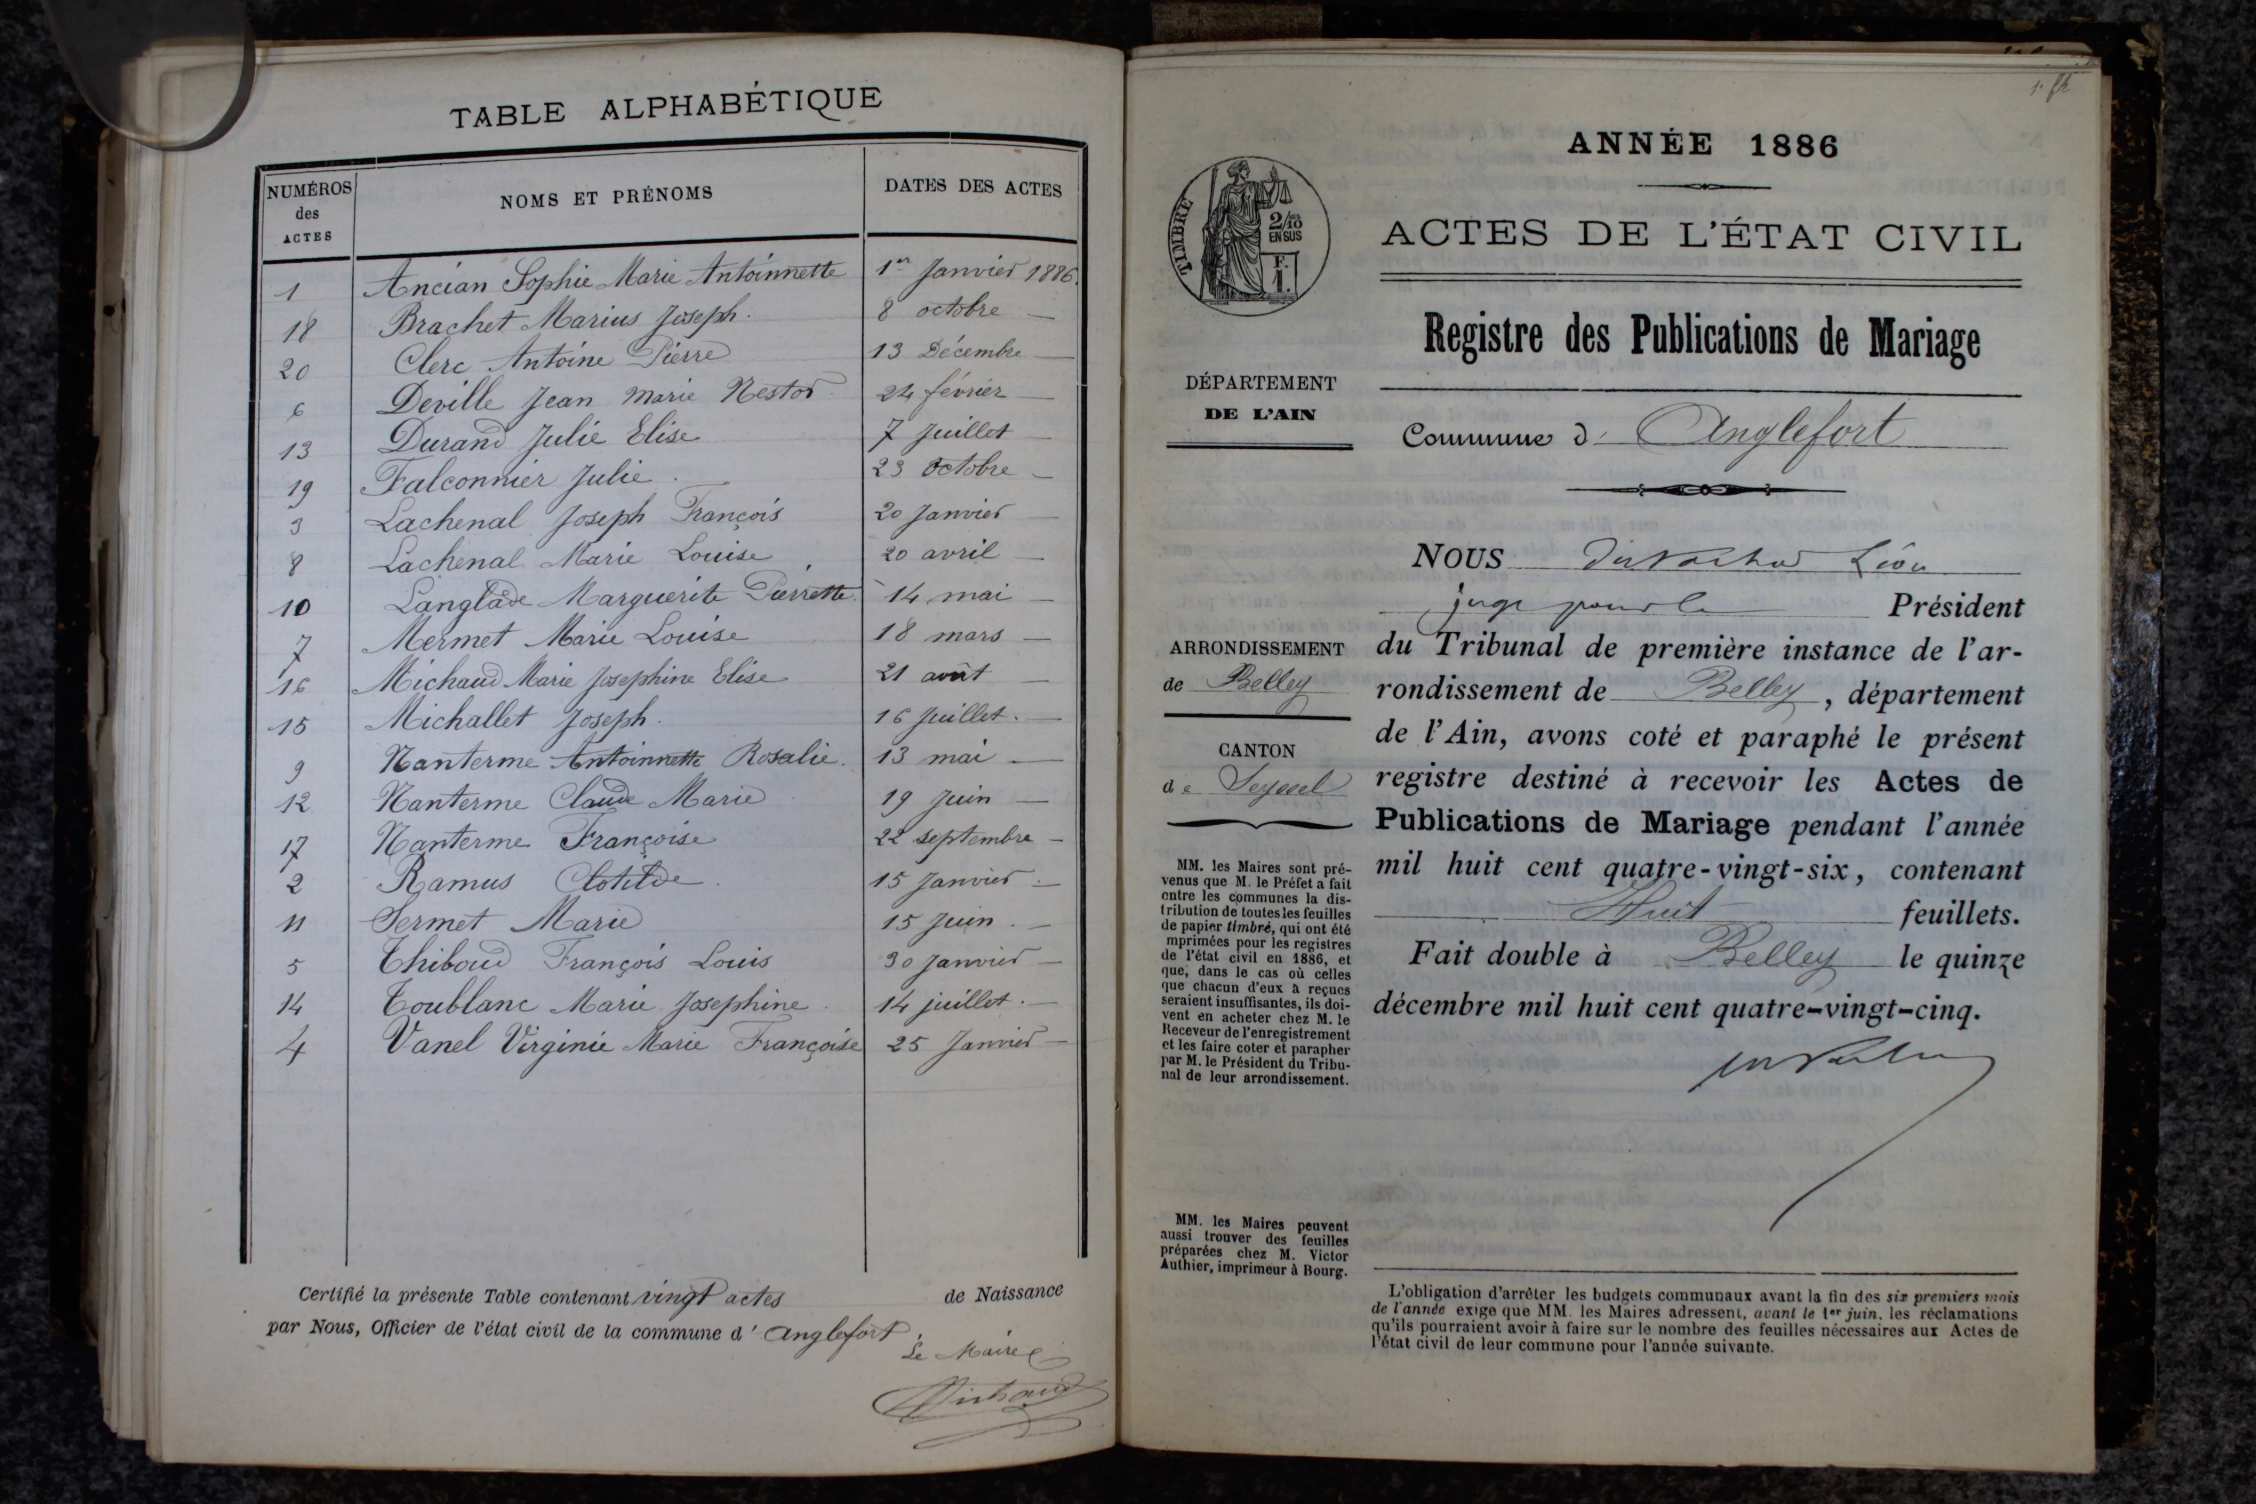 TABLE ALPHABÉTIQUE
NUMÉROS des ACTES NOMS ET PRÉNOMS DATES DES ACTES
1 Ancian Sophie Marie Antoinnette 1er Janvier 1886.
18 Brachet Marius Joseph. 8 octobre —
20 Clerc Antoine Pierre 13 Décembre —
6 Deville Jean Marie Nestor 24 février —
13 Durand Julie Elise 7 Juillet —
19 Falconnier Julie. 23 Octobre —
3 Lachenal Joseph François 20 Janvier —
8 Lachenal Marie Louise 20 avril —
10 Langlade Marguerite Pierrette. 14 mai —
7 Mermet Marie Louise 18 mars —
16 Michaud Marie Josephine Elise 21 août —
15 Michallet Joseph. 16 Juillet. —
9 Nanterme Antoinnette Rosalie. 13 mai —
12 Nanterme Claude Marie 19 Juin —
17 Nanterme Françoise 22 septembre —
2 Ramus Clotilde. 15 Janvier. —
11 Sermet Marie 15 Juin. —
5 Thiboud François Louis 30 Janvier —
14 Toublanc Marie Josephine. 14 juillet. —
4 Vanel Virginie Marie Françoise 25 Janvier —
Certifié la présente Table contenant vingt actes de Naissance
par Nous, Officier de l'état civil de la commune d'Anglefort.
Le Maire
Michaud
ANNÉE 1886
TIMBRE
2/10
EN SUS
F.
1.
ACTES DE L'ÉTAT CIVIL
Registre des Publications de Mariage
DÉPARTEMENT
DE L'AIN
Commune d' Anglefort
ARRONDISSEMENT
de Belley
CANTON
de Seyssel
MM. les Maires sont pré-
venus que M. le Préfet a fait
entre les communes la dis-
tribution de toutes les feuilles
de papier timbré, qui ont été
mprimées pour les registres
de l'état civil en 1886, et
que, dans le cas où celles
que chacun d'eux a reçues
seraient insuffisantes, ils doi-
vent en acheter chez M. le
Receveur de l'enregistrement
et les faire coter et parapher
par M. le Président du Tribu-
nal de leur arrondissement.
MM. les Maires peuvent
aussi trouver des feuilles
préparées chez M. Victor
Authier, imprimeur à Bourg.
NOUS Léon
juge pour le Président
du Tribunal de première instance de l'ar-
rondissement de Belley, département
de l'Ain, avons coté et paraphé le présent
registre destiné à recevoir les Actes de
Publications de Mariage pendant l'année
mil huit cent quatre-vingt-six, contenant
Huit feuillets.
Fait double à Belley le quinze
décembre mil huit cent quatre-vingt-cinq.
L'obligation d'arrêter les budgets communaux avant la fin des six premiers mois
de l'année exige que MM. les Maires adressent, avant le 1er juin, les réclamations
qu'ils pourraient avoir à faire sur le nombre des feuilles nécessaires aux Actes de
l'état civil de leur commune pour l'année suivante.